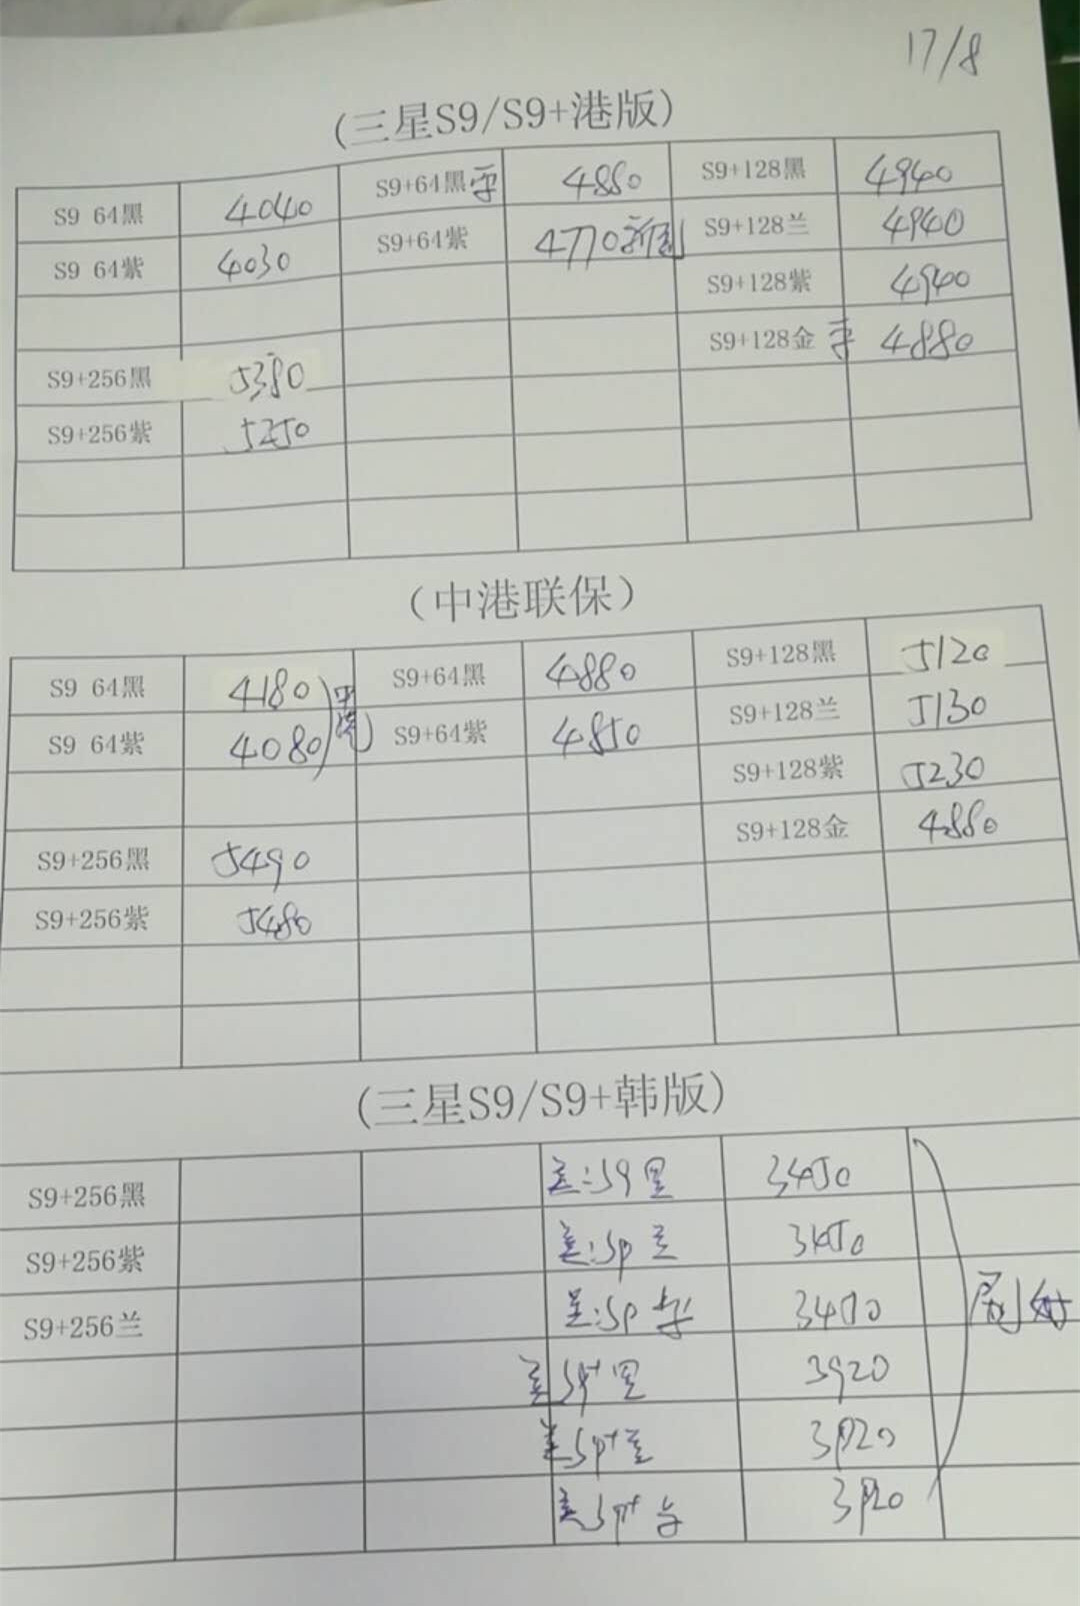 17/8
(三星S9/S9+港版)
S9 64黑 4040 S9+64黑 4880 S9+128黑 4940
S9 64紫 4030 S9+64紫 4770 S9+128兰 4940
S9+128紫 4940
S9+128金 4880
S9+256黑 5380
S9+256紫 5250
（中港联保）
S9 64黑 4180 S9+64黑 4880 S9+128黑 5120
S9 64紫 4080 S9+64紫 4850 S9+128兰 5130
S9+128紫 5230
S9+128金 4880
S9+256黑 5490
S9+256紫 5480
(三星S9/S9+韩版)
S9+256黑 S9 3450
S9+256紫 S9 3450
S9+256兰 S9 3450
S9+ 3920
S9+ 3920
S9+ 3920